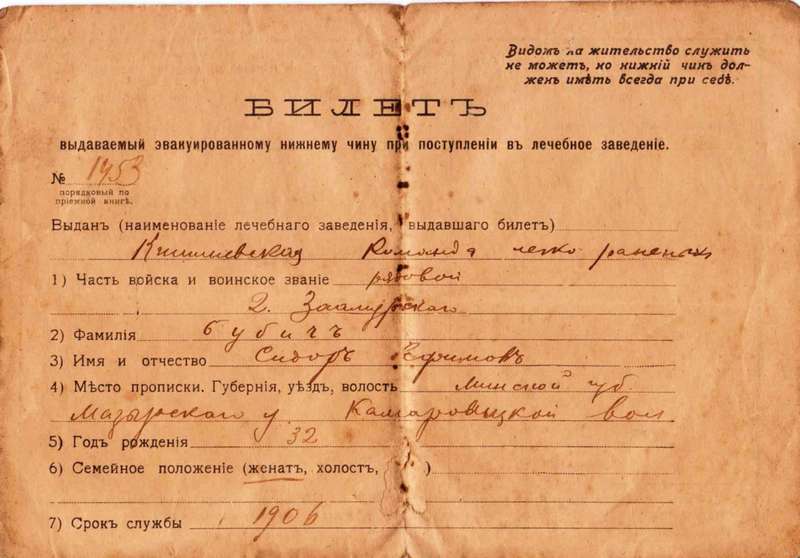 Видомъ на жительство служить
не можетъ, но нижній чинъ дол-
женъ имѣть всегда при себѣ.
БИЛЕТЪ
выдаваемый эвакуированному нижнему чину при поступленіи въ лечебное заведеніе.
№ 1453
порядковый по
пріемной книгѣ.
Выданъ (наименованіе лечебнаго заведенія, выдавшаго билетъ)
Кишиневская Команда легко раненыхъ
1) Часть войска и воинское званіе рядовой
2. Заамурскаго
2) Фамилія Бубичъ
3) Имя и отчество Сидоръ Ефимовъ
4) Мѣсто прописки. Губернія, уѣздъ, волость Минской губ
Мазырскаго у Камаровицкой вол
5) Годъ рожденія 32
6) Семейное положеніе (женатъ, холостъ, )
7) Срокъ службы 1906